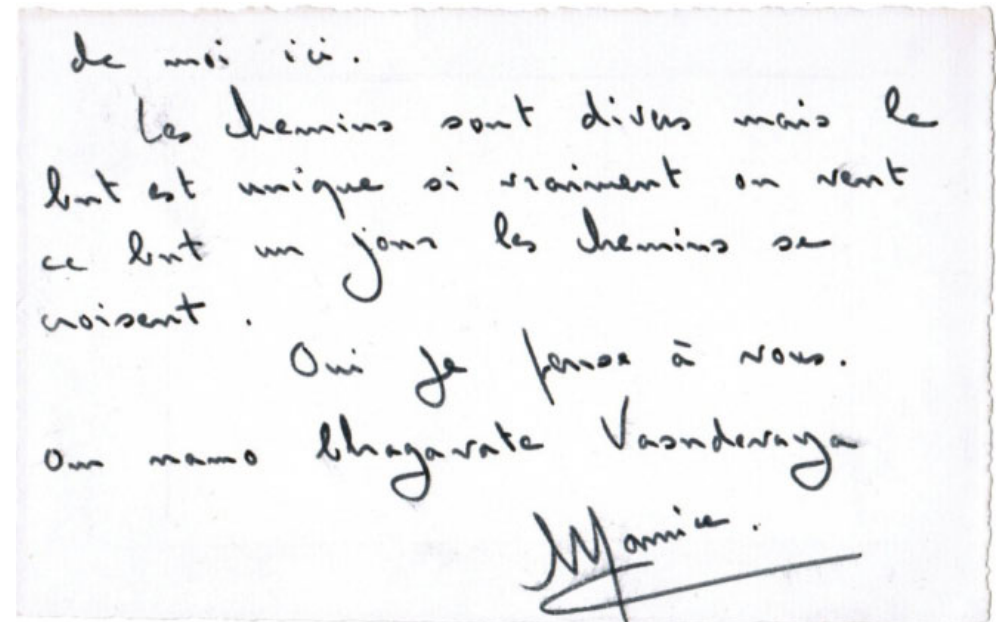 de moi ici.
Les chemins sont divers mais le
but est unique si vraiment on veut
ce but un jour les chemins se
croisent.
Oui je pense à vous.
Om namo bhagavate Vasudevaya